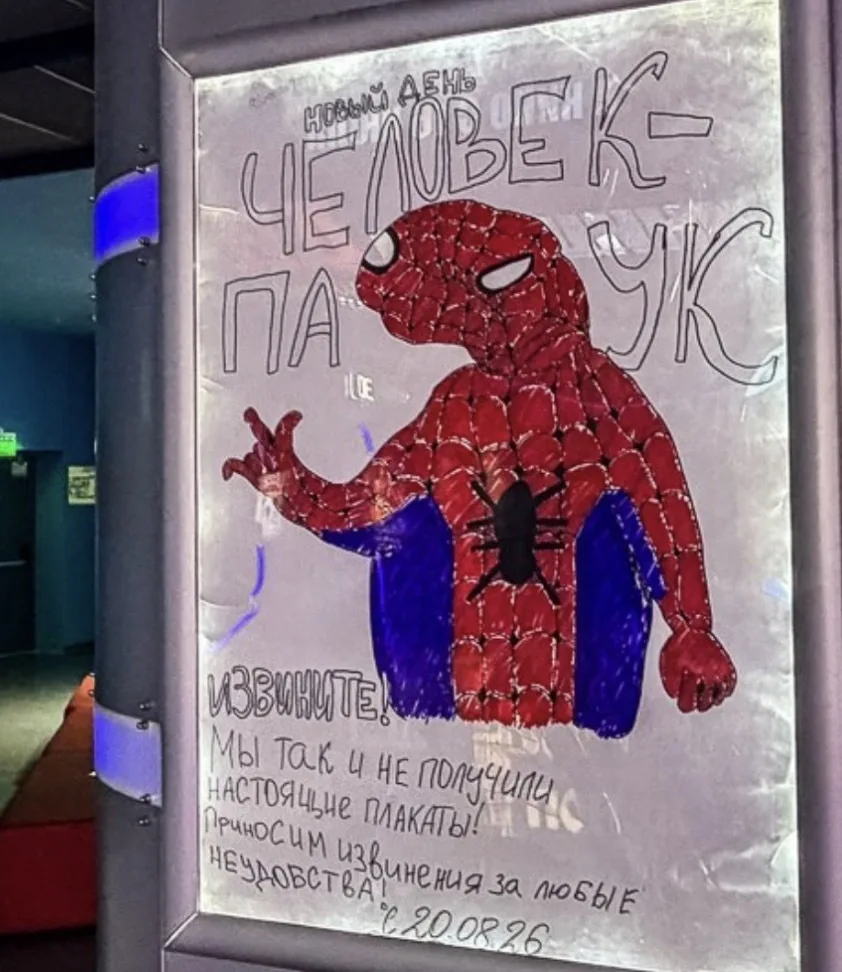 НОВЫЙ ДЕНЬ
ЧЕЛОВЕК-
ПАУК
ИЗВИНИТЕ!
Мы так и не получили
настоящие плакаты!
Приносим извинения за любые
неудобства!
с 20.08.26